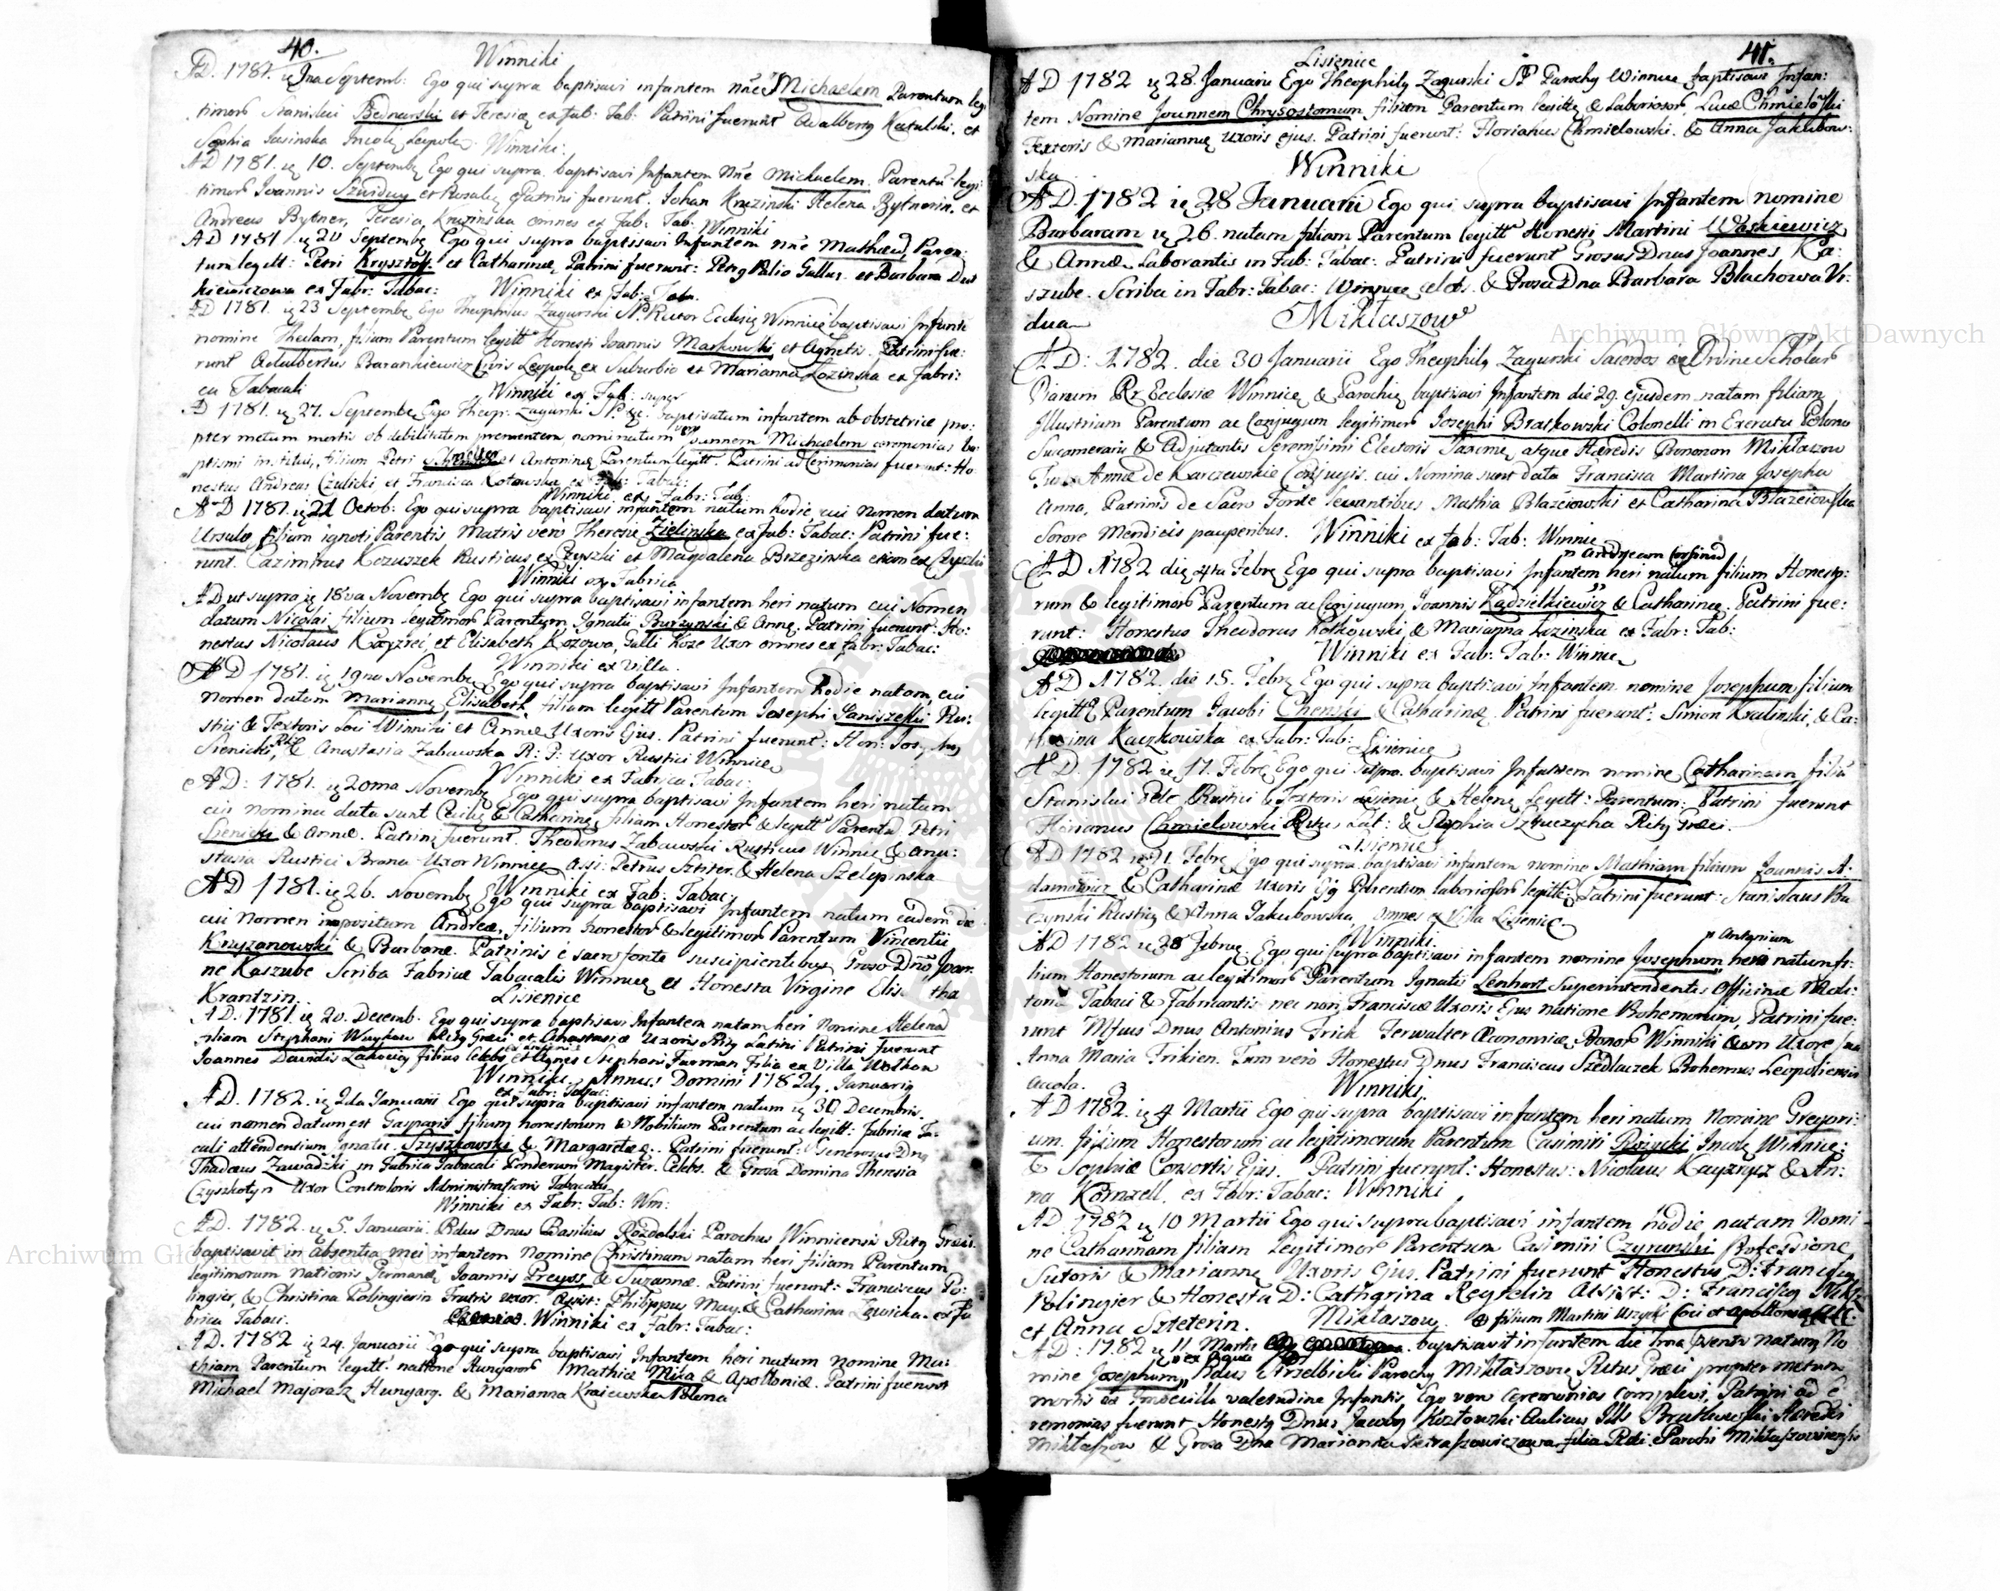 40.
Winniki
AD. 1781. ię 1ma Septemb: Ego qui supra baptisavi infantem nñe Michaelem Parentum legi
timor Stanislai Bednarski et Teresiæ ex fab: Tab: Patrini fuerunt Adalbertq Katulski, et
Sophia Jasinska Incolę Leopolę. Winniki:
AD 1781. ię 10. Septembę Ego qui supra baptisavi Infantem Nñe Michaelem. Parentū legi:
timor Joannis et Rosalię Patrini fuerunt. Johan Kruzinski Helena Bytnerin, et
Andreas Bytner, Teresia Kruzinska omnes ex Fab: Tab: Winniki
AD 1781. ię 20 Septembę Ego qui supra baptisavi Infantem nñe Mathæū, Paren:
tum legitt: Petri Krysztoff et Catharinæ, Patrini fuerunt: Petrq Palio Gallus et Barbara Dus
kiewiczowa ex Fabr: Tabac: Winniki ex Fab: Tab.
AD 1781. ię 23 Septembę Ego Theophilus Zagurski SP. Rector Ecclesię Winnicę baptisavi Infantē
nomine Theclam, filium Parentum legitt Honesti Joannis Markowski et Agnetis. Patrini fue:
runt Adalbertus Barankiewicz Civis Leopolę ex Suburbio et Marianna Lozinska ex Fabri:
ca Tabacali Winniki ex Fab: super
AD 1781. ię 27. Septembę Ego Theop: Zagurski SP. &c. baptisatum infantem ab obstetrice pro:
pter metum mortis ob debilitatem prementem, nominatum vero Joannem Michaelem ceremonias ba
ptismi institui, filium Petri et Antoninę Parentum legitt. Patrini ad Cerimonias fuerunt: Ho
nestus Andreas Czulicki et Francisca Kotowska ex Fab: Tabac:
Winniki ex Fabr: Tab:
AD 1781. ię 21 Octob: Ego qui supra baptisavi infantem natum hodie cui nomen datum
Ursula, filium ignoti Parentis Matris vero Theresiæ Zielinska ex Fab: Tabac: Patrini fue:
runt. Cazimirus Kozuszek Rusticus ex Czyszki et Magdalena Brzezinska etiam ex Czyszki
Winniki ex Fabrica
AD ut supra ię 18va Novembę Ego qui supra baptisavi infantem heri natum cui Nomen
datum Nicolai filium legitimor Parentum Ignatii Burzynski & Annę. Patrini fuerunt: Ho:
nestus Nicolaus Karzrei et Elisabeth Kozowa, Galli Koze Uxor omnes ex fabr: Tabac:
Winniki ex villa.
AD 1781. ię 19na Novembę Ego qui supra baptisavi Infantem hodie natam, cui
nomen datum Mariannę Elisabeth, filiam legitt Parentum Josephi Janiszeski Ru:
stici & Textoris Loci Winniki et Annæ Uxoris Ejus. Patrini fuerunt: Hon: Josephq
Sienicki, & Anastasia Zabawska R: G: Uxor Rustici Winnicę
Winniki ex Fabrica Tabac:
AD: 1781. ię 20ma Novembę Ego qui supra baptisavi Infantem heri natum
cui nomina data sunt Cæcilię & Catharinę, filiam Honestor & legitt Parentū Petri
Sienicki & Annæ. Patrini fuerunt. Theodorus Zabawski Rusticus Winnicę & Ana:
stasia Rustici Brana Uxor Winnicę Assi: Petrus Szteter & Helena Szelepinska
Winniki ex Fab: Tabac:
AD 1781. ię 26. Novembę Ego qui supra baptisavi Infantem natum eadem die
cui Nomen impositum Andreæ, filium honestor & legitimor Parentum Vincentii
Kryzanowski & Barbaræ. Patrinis è sacro fonte suscipientibus Groso Dño Joan:
ne Kaszube Scriba Fabricæ Tabacalis Winnicę et Honesta Virgine Elis tha
Krantzin. Lisienice
AD. 1781. ię 20. Decemb. Ego qui supra baptisavi Infantem natam heri Nomine Helena
filiam Stephani Ritq Græci et Anastasiæ Uxoris Ritq Latini Patrini fuerunt
Joannes Davidis filius celebs et Agnes Stephani Furman Filia ex Villa Wolkow
Winniki. Annus Domini 1782dq Januariq
ex Fabr: Tabac:
AD. 1782. ię 2da Januarii Ego qui supra baptisavi infantem natum ię 30 Decembris.
cui nomen datum est Gasparis filium honestorum & Nobilium Parentum ac legitt: fabricæ Ta:
cali attendensium Ignatii Szyszkowski & Margaretæ. Patrini fuerunt: Generosus Dnq
Thadæus Zawadzki in Fabrica Tabacali Ponderum Magister. Celebs. & Grosa Domina Theresia
Czyszkotyn Uxor Controloris Administrationis Tabacalis
Winniki ex Fabr: Tab: Win:
AD. 1782. ię 5. Januarii. Rdus Dnus Basilius Rozdolski Parochus Winnicensis Ritq Græci.
baptisavit in absentia mei infantem Nomine Christinam natam heri filiam Parentum
legitimorum nationis Germanæ Joannis Preyss & Suzannæ. Patrini fuerunt: Franciscus Po:
lingier, & Christina Polingierin Fratris uxor. Assist: Philippus May. & Catharina Lewicka. ex fa
brica Tabaci. Winniki ex Fabr: Tabac:
AD. 1782 ię 24. Januarii Ego qui supra baptisavi Infantem heri natum nomine Ma:
thiam Parentum legitt. natione Hungaror Mathiæ Mika & Apolloniæ. Patrini fuerunt
Michael Majoraz Hungarq. & Marianna Kraiewska Polona
41.
Lisienice
AD 1782 ię 28 Januarii Ego Theophilq Zagurski SP Parochq Winnicę baptisavi Infan:
tem Nomine Joannem Chrysostomum filium Parentum legittę & Laboriosor, Lucæ Chmielowski
Textoris & Mariannę Uxoris ejus. Patrini fuerunt: Florianus Chmielowski. & Anna Jakubow:
ska. Winniki
AD. 1782 ię 28 Januarii Ego qui supra baptisavi Infantem nomine
Barbaram ię 26. natam filiam Parentum legitt Honesti Martini Waskiewicz
& Annæ Laborantis in Fab: Tabac: Patrini fuerunt Grosus Dnus Joannes Ka:
szube. Scriba in Fabr: Tabac: Winnicę celebs. & Grosa Dna Barbara Blachowa Vi:
dua
Miklaszow
AD: 1782. die 30 Januarii Ego Theophilq Zagurski Sacerdos ex Ordine Scholar
Piarum Rr Ecclesiæ Winnicę & Parochię baptisavi Infantem die 29. ejusdem natam filiam
Illustrium Parentum ac Conjugum legitimor Josephi Bratkowski Colonelli in Exercitu Polono
Succamerarii & Adjutantis Serenissimi Electoris Saxoniæ atque Hæredis Bonorum Miklaszow
Annæ de Karczewskie Conjugis. cui Nomina sunt data Francisca Martina Josepha
Anna, Patrinis de Sacro Fonte levantibus Mathia Blazeiowski et Catharina Blazeiowska
Sorore Mendicis pauperibus. Winniki ex fab: Tab: Winnic
n Andream Corsinū
AD 1782 die 4ta Febrę Ego qui supra baptisavi Infantem heri natum filium Honesto:
rum & legitimor Parentum ac Conjugum, Joannis Kądzielkiewicz & Catharinæ. Patrini fue:
runt: Honestus Theodorus Kotkowski, & Marianna Lozinska ex Fabr: Tab:
Winniki ex Fab: Tab: Winnic
AD 1782. die 15. Febrę Ego qui supra baptisavi Infantem nomine Josephum filium
legitt Parentum Jacobi Chenski & Catharinæ. Patrini fuerunt: Simon Kralinski, & Ca:
tharina Kaczkowska ex Fabr: Tab:
Lisienice
AD. 1782 ię 17. Febrę Ego qui supra baptisavi Infantem nomine Catharinam filiā
Stanislai Pelc Rustici & Textoris Lisienic & Helenę Legitt: Parentum: Patrini fuerunt
Florianus Chmielowski Ritus Lat: & Sophia Ritq Græci.
Lisienice
AD 1782 ię 21. Febrę Ego qui supra baptisavi infantem nomine Mathiam filium Joannis A:
damowicz & Catharinæ uxoris Parentum laboriosor legitt: Patrini fuerunt: Stanislaus Ba
czynski Rusticq & Anna Jakubowska omnes ex Villa Lisienic
Winniki.
n Antonium
AD 1782 ię 28 Februę. Ego qui supra baptisavi infantem nomine Josephum heri natum fi:
lium Honestorum ac legitimor Parentum Ignatii Lenhart Superintendentis Officinæ Moli:
toriæ Tabaci & Fabricantis nec non Franciscæ Uxoris Ejus natione Bohemorum, Patrini fue:
runt Dnus Antonius Frick Ferwalter Œconomiæ Bonor Winniki cum Uxore sua
Anna Maria Frikien. Tum vero Honestus Dnus Franciscus Szedlaczek Bohemus Leopoliensis
accola. Winniki.
AD 1782. ię 4 Martii Ego qui supra baptisavi infantem heri natum Nomine Gregori:
um. filium Honestorum ac legitimorum Parentum Casimiri Rozycki Incolę Winnic:
& Sophiæ Consortis Ejus. Patrini fuerunt: Honestus: Nicolaus & An:
na Kornzell. ex Fabr: Tabac: Winniki
AD 1782 ię 10 Martii Ego qui supra baptisavi infantem hodie natam Nomi
ne Catharinam filiam Legitimor Parentum Casimiri Czyrunski Professione
Sutoris & Mariannę Uxoris Ejus. Patrini fuerunt Honestus D: Franciscus
Polingier & Honesta D: Catharina Regielin Assist: D: Franciscq
et Anna Szteterin. Miklaszow. filium Martini Uszycki Coci et Apolloniæ
AD: 1782 ię 11 Martii baptisavit infantem die natum No
mine Josephum, Rdus Strzelbicki Parochq Miklaszovię Ritus Græci propter metum
mortis ex Imbecilla valetudine Infantis. Ego vero Ceremonias complevi, Patrini ad Ce
remonias fuerunt Honestq Dnus Jacobq Kozlowski Aulicus Ills Bratkowski Hæredis
Miklaszow & Grosa Dna Marianna Pietraszowiczowa filia Rdi Parochi Miklaszoviensis
Archiwum Główne Akt Dawnych
Archiwum Główne Akt Dawnych